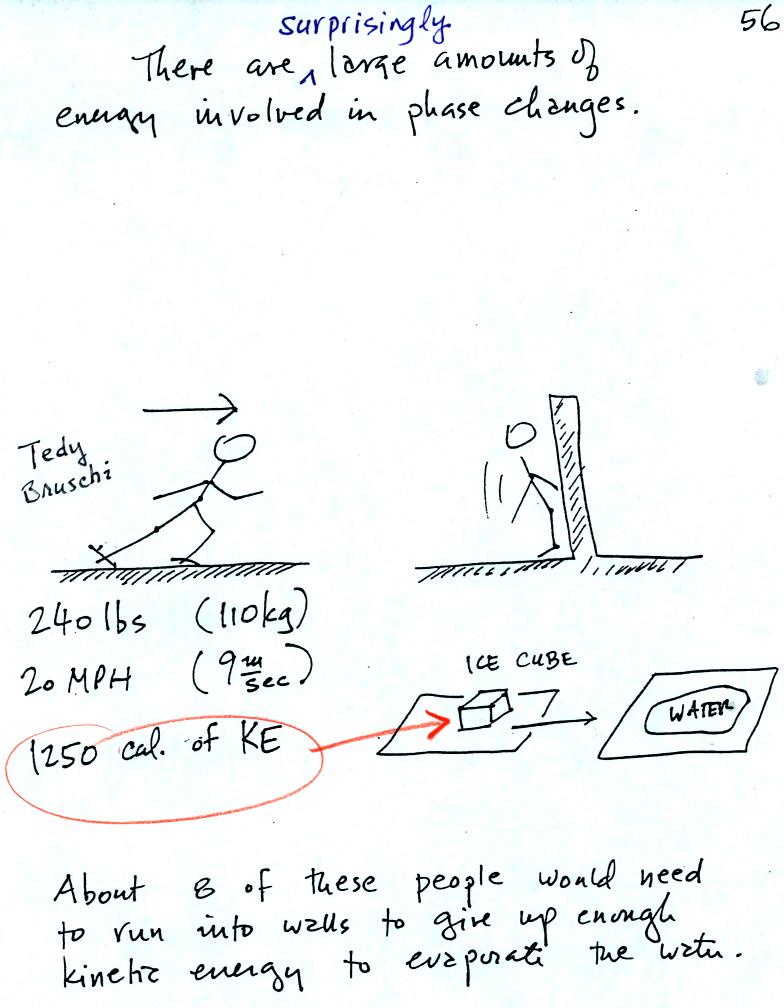 56
surprisingly
There are ^ large amounts of
energy involved in phase changes.
Tedy
Bruschi
240 lbs (110kg)
20 MPH (9 m/sec)
1250 cal. of KE
ICE CUBE
WATER
About 8 of these people would need
to run into walls to give up enough
kinetic energy to evaporate the water.